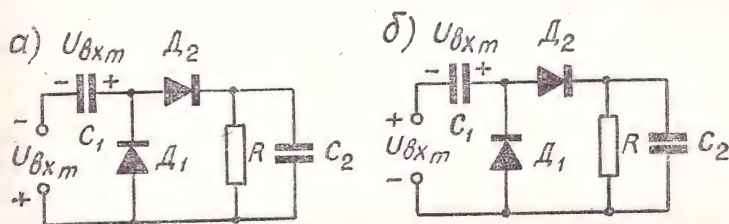 а) Uвхm Д₂
- +
-
C₁
Uвхm Д₁ R C₂
+
б) Uвхm Д₂
- +
+
C₁
Uвхm Д₁ R C₂
-